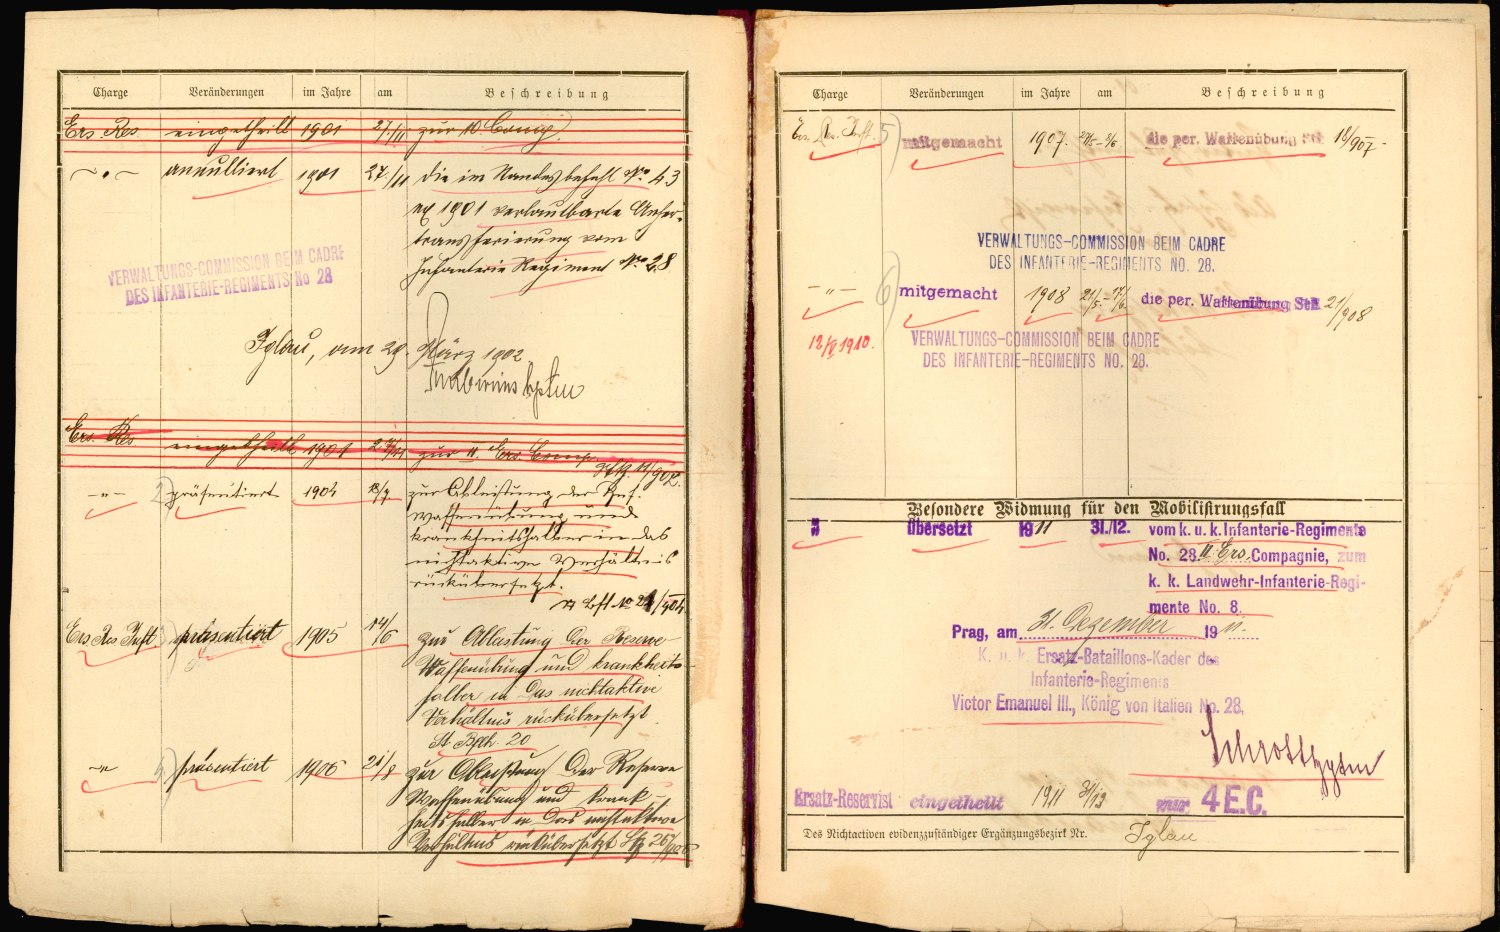 Charge Veränderungen im Jahre am Beschreibung
Ers. Res. eingetheilt 1901 27/11 zur 10. Comp.
annulliert 1901 27/11 die im Standesbefehl No 43
ex 1901 verlautbarte
transferierung vom
Infanterie Regiment No 28
VERWALTUNGS-COMMISSION BEIM CADRE
DES INFANTERIE-REGIMENTS No 28
Iglau, am 29. März 1902
Ers. Res. eingetheilt 1901 27/11 zur II. Ers. Comp.
11/902.
-"- 2) präsentiert 1904 zur Ableistung der
Waffenübung und
krankheitshalber in das
nichtaktive Verhältnis
rückübersetzt.
Ers. Res. Inft. 3) präsentiert 1905 14/6 zur Ableistung der Reserve
Waffenübung und krankheits
halber in das nichtaktive
Verhältnis rückübersetzt.
20
-"- 4) präsentiert 1906 21/8 zur Ableistung der Reserve
Waffenübung und krank
heitshalber in das nichtaktive
Verhältnis rückübersetzt
Charge Veränderungen im Jahre am Beschreibung
5) mitgemacht 1907. die per. Waffenübung StB 18/907
VERWALTUNGS-COMMISSION BEIM CADRE
DES INFANTERIE-REGIMENTS NO. 28.
-"- 6) mitgemacht 1908 die per. Waffenübung StB 21/908
1910.
VERWALTUNGS-COMMISSION BEIM CADRE
DES INFANTERIE-REGIMENTS NO. 28.
Besondere Widmung für den Mobilisierungsfall
übersetzt 1911 31./12. vom k. u. k. Infanterie-Regimente
No. 28 II Ers. Compagnie, zum
k. k. Landwehr-Infanterie-Regi-
mente No. 8.
Prag, am 31. Dezember 1911.
K. u. k. Ersatz-Bataillons-Kader des
Infanterie-Regiments
Victor Emanuel III., König von Italien No. 28.
Ersatz-Reservist eingeteilt 1911 zur 4 E.C.
Des Nichtactiven evidenzzuständiger Ergänzungsbezirk Nr. Iglau